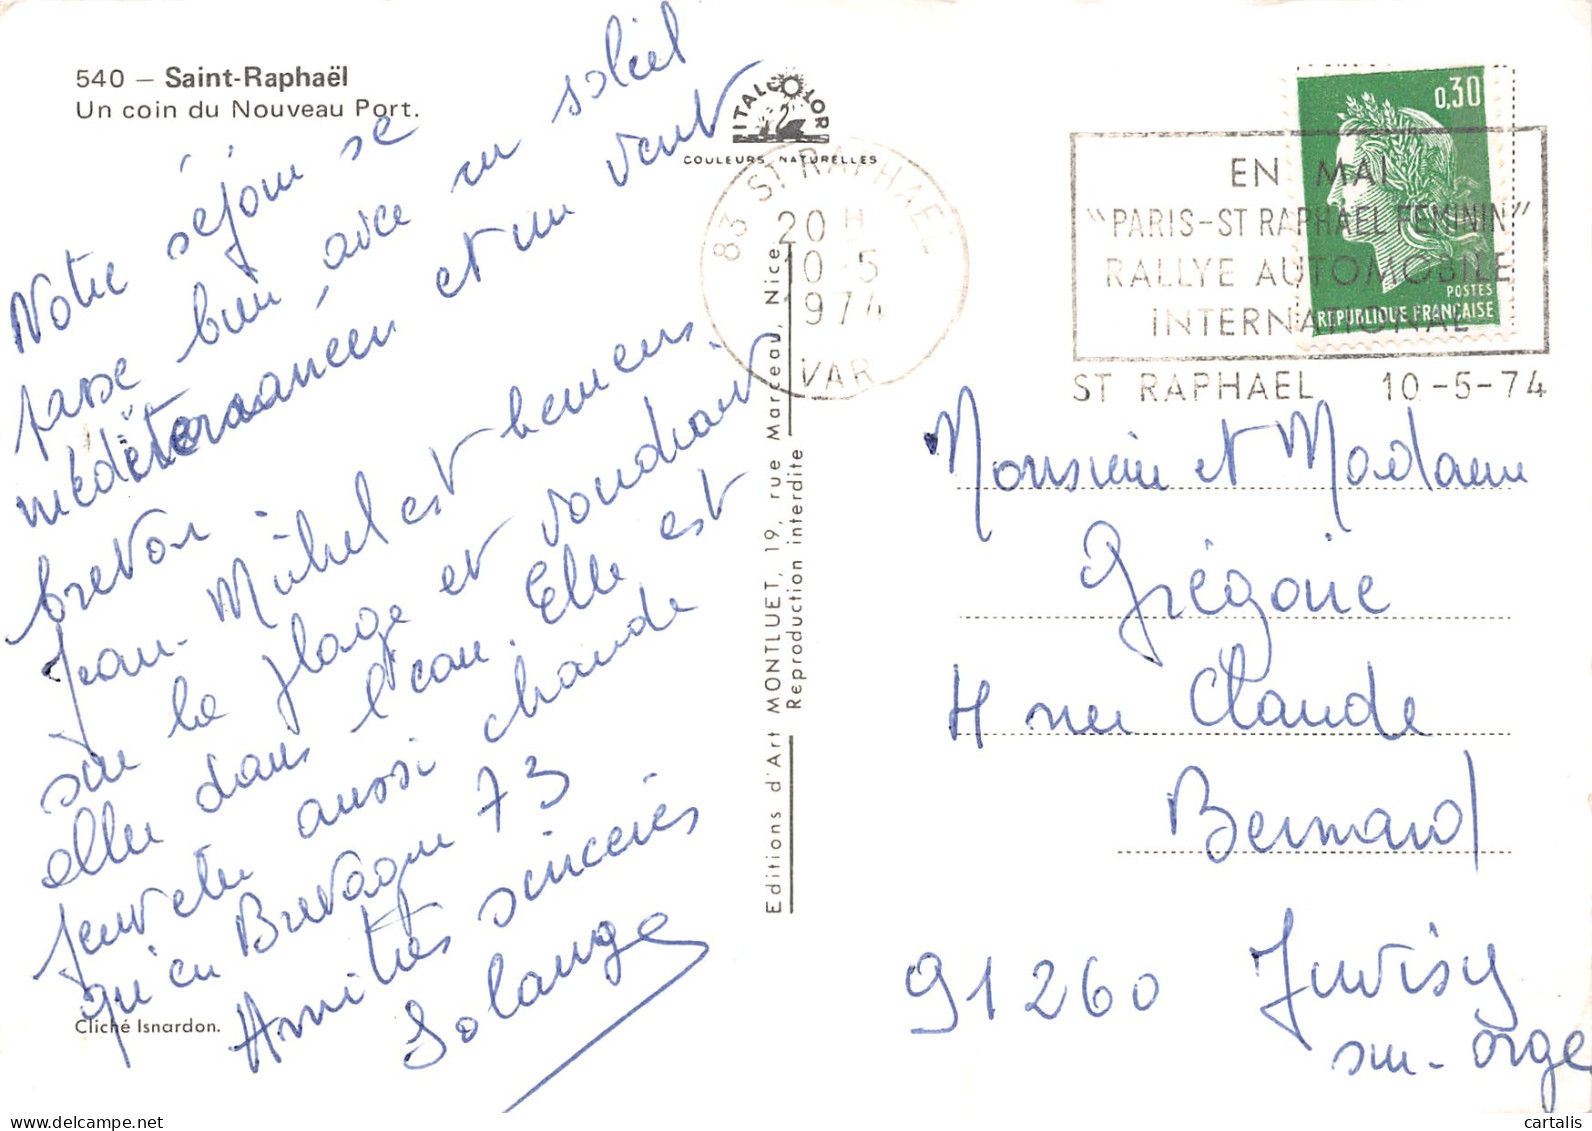 540 – Saint-Raphaël
Un coin du Nouveau Port.
Notre séjour se
passe bien avec un soleil
méditerranéen et un vent
breton.
Jean-Michel est heureux
sur la plage et voudrait
aller dans l'eau. Elle est
peut etre aussi chaude
qu'en Bretagne 73
Amitiés sincères
Solange
Cliché Isnardon.
ITALCOLOR
COULEURS NATURELLES
Editions d'Art MONTLUET, 19, rue Marceau, Nice
Reproduction interdite
83 ST RAPHAEL
20 H
10-5
1974
VAR
0,30
POSTES
REPUBLIQUE FRANÇAISE
EN MAI
"PARIS-ST RAPHAEL FEMININ"
RALLYE AUTOMOBILE
INTERNATIONAL
ST RAPHAEL 10-5-74
Monsieur et Madame
Grégoire
4 rue Claude
Bernard
91260 Juvisy
sur-orge
cartalis